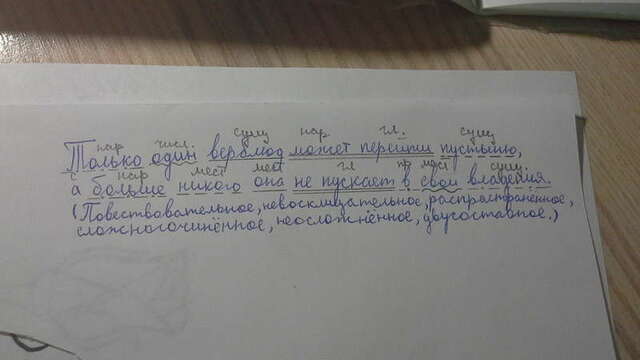 нар числ. сущ нар гл. сущ
Только один верблюд может перейти пустыню,
с нар мест мест гл пр мест сущ.
а больше никого она не пускает в свои владения.
(Повествовательное, невосклицательное, распространённое,
сложносочинённое, неосложнённое, двусоставное.)